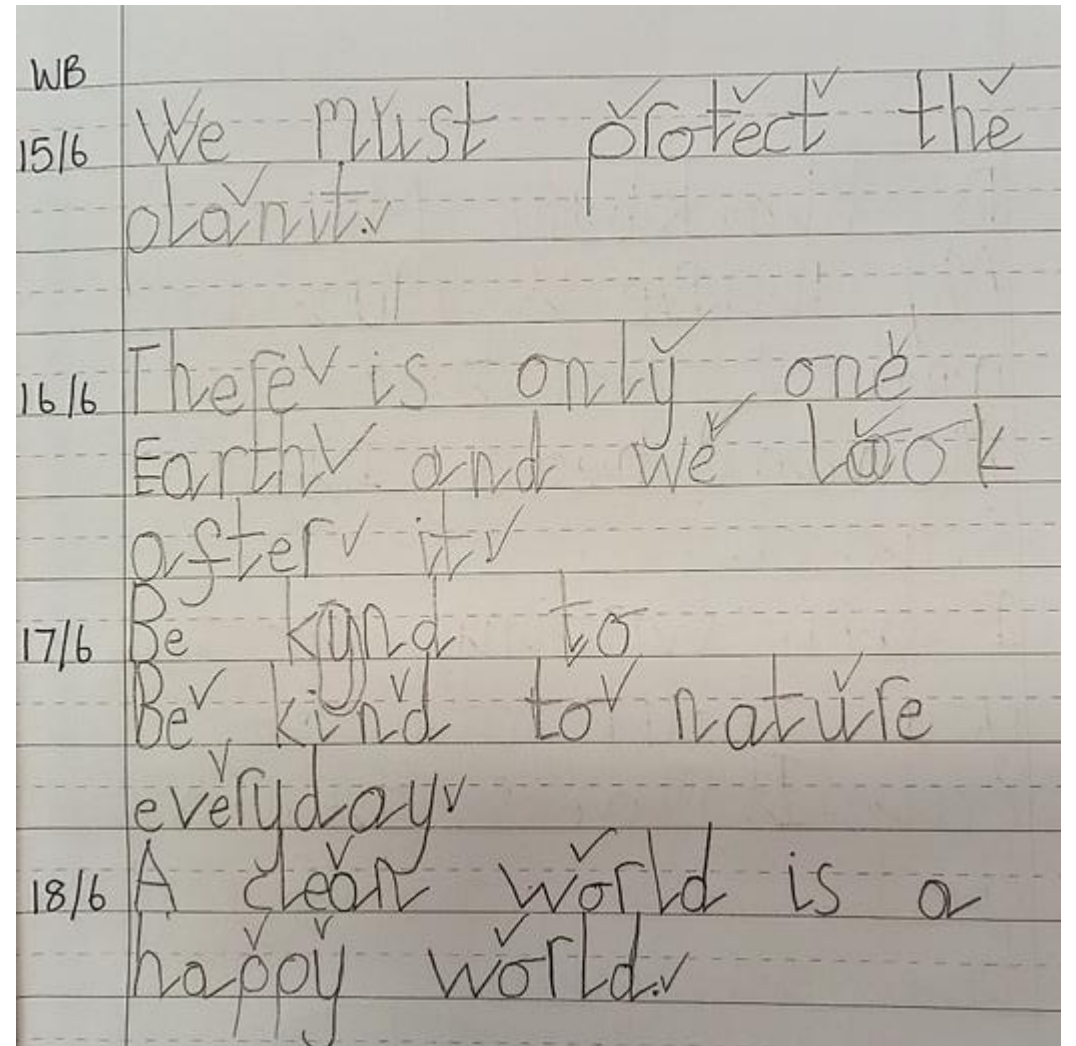 WB
15/6 We must protect the
planit.
16/6 There is only one
Earth and we look
after it
17/6 Be kynd to
Be kind to nature
everyday
18/6 A clean world is a
happy world.